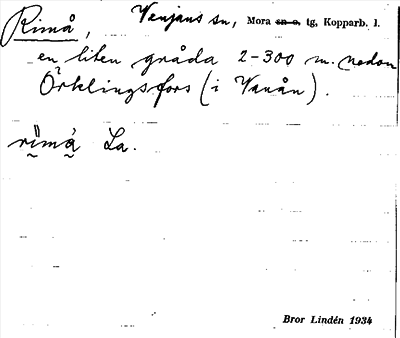 Rimå, Venjans sn, Mora sn o. tg, Kopparb. l.
en liten gråda 2-300 m. nedom
Örklingsfors (i Vanån).
rima La.
Bror Lindén 1934